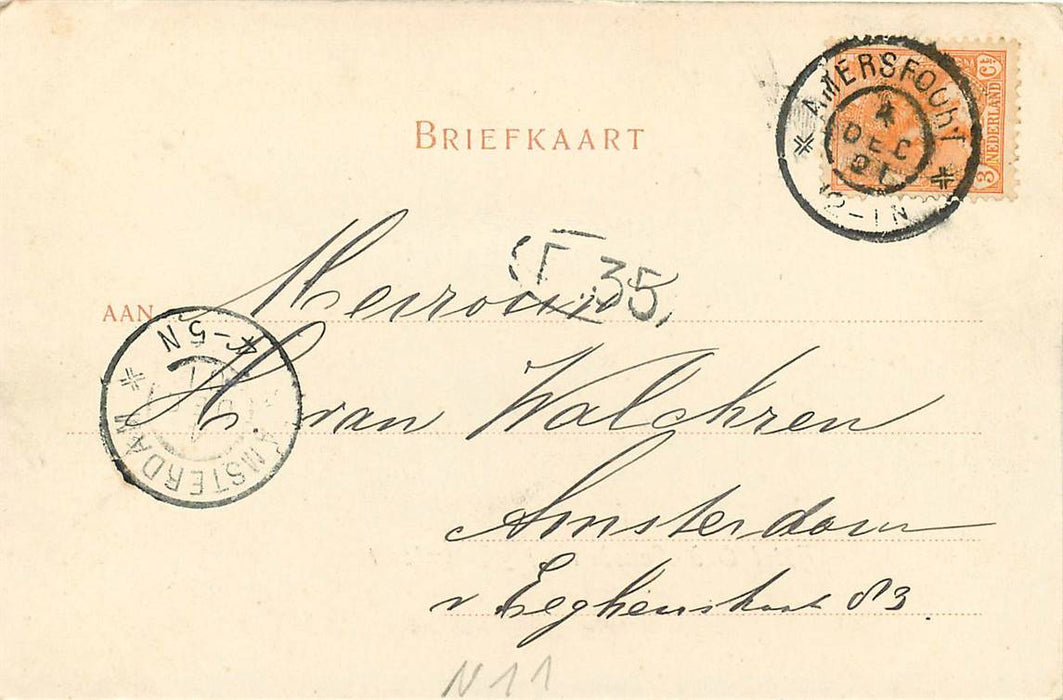 BRIEFKAART
AMERSFOORT
4
DEC
12-1N
3 NEDERLAND Ct
T 35
AAN Mevrouw
4-5N
AMSTERDAM
H. van Walchren
Amsterdam
v Eeghenstraat 83.
N 11